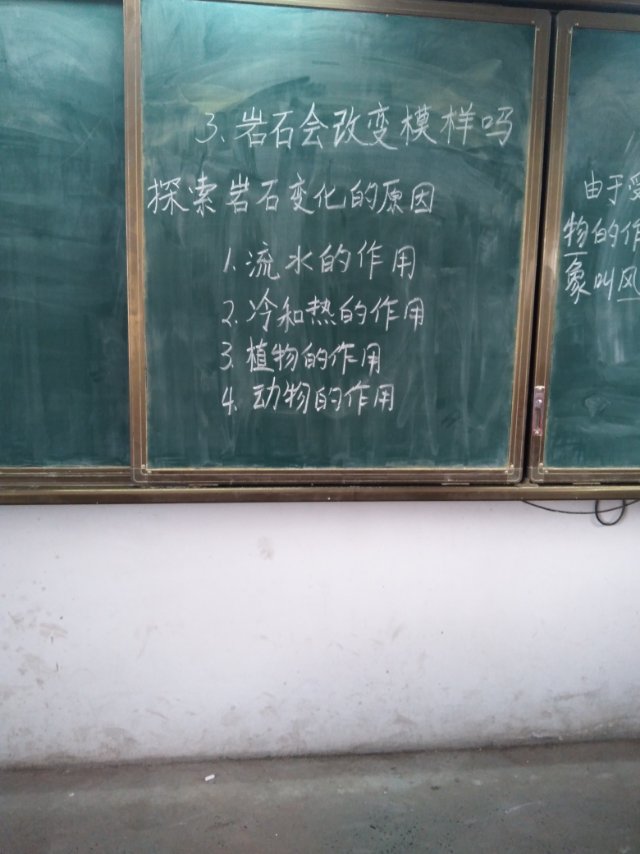 3、岩石会改变模样吗
探索岩石变化的原因
1.流水的作用
2.冷和热的作用
3.植物的作用
4.动物的作用
由于受
物的作
象叫风